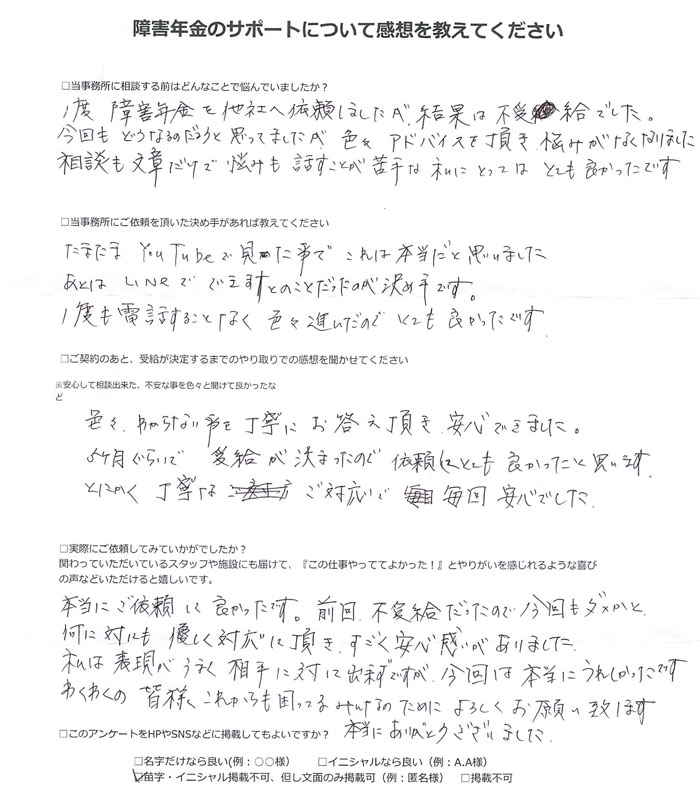 障害年金のサポートについて感想を教えてください
□当事務所に相談する前はどんなことで悩んでいましたか？
1度 障害年金を他社へ依頼しましたが、結果は不受給でした。
今回もどうなるのだろうと思ってましたが 色々アドバイスを頂き 悩みがなくなりました
相談も文章だけで 悩みも 話すことが苦手な 私にとっては とても良かったです
□当事務所にご依頼を頂いた決め手があれば教えてください
たまたま YouTubeで見た事で これは本当だと思いました
あとは LINEで できますとのことだったのが決め手です。
1度も電話することなく 色々進んだので とても良かったです
□ご契約のあと、受給が決定するまでのやり取りでの感想を聞かせてください
※安心して相談出来た、不安な事を色々と聞けて良かったな
ど
色々、わからない事を丁寧に お答え頂き 安心できました。
5ヶ月ぐらいで 受給が決まったので 依頼してとても良かったと思います
とにかく 丁寧な ご対応で 毎回 安心でした
□実際にご依頼してみていかがでしたか？
関わっていただいているスタッフや施設にも届けて、『この仕事やっててよかった！』とやりがいを感じれるような喜び
の声などいただけると嬉しいです。
本当にご依頼して良かったです。前回、不受給だったので 今回もダメかと
何に対しても 優しく対応して頂き、すごく安心感がありました
私は 表現がうまく 相手に対して出来ずですが、今回は本当にうれしかったです
わくわくの 皆様、これからも困ってるみんなのために よろしくお願い致します
□このアンケートをHPやSNSなどに掲載してもよいですか？ 本当にありがとうございました
□名字だけなら良い(例：○○様) □イニシャルなら良い（例：A.A様）
☑苗字・イニシャル掲載不可、但し文面のみ掲載可（例：匿名様） □掲載不可